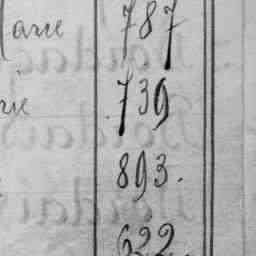 Marie 787
739
893.
622.